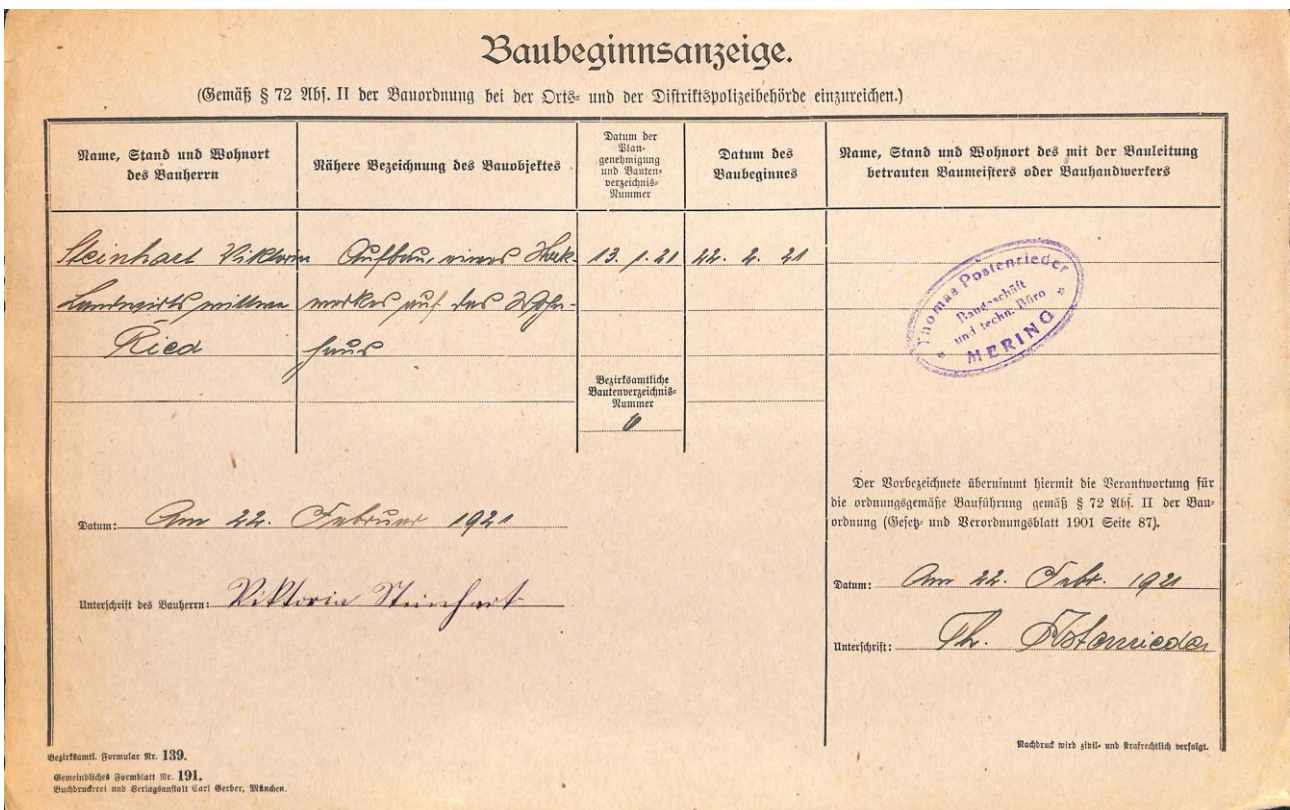 Baubeginnsanzeige.
(Gemäß § 72 Abs. II der Bauordnung bei der Orts- und der Distriktspolizeibehörde einzureichen.)
Name, Stand und Wohnort
des Bauherrn
Nähere Bezeichnung des Bauobjektes
Datum der
Plan-
genehmigung
und Bauten-
verzeichnis-
Nummer
Datum des
Baubeginnes
Name, Stand und Wohnort des mit der Bauleitung
betrauten Baumeisters oder Bauhandwerkers
Steinhart Viktoria
Landwirtswittwe
Ried
Aufbau eines Stock-
werkes auf das Wohn-
haus
13. 1. 21
Bezirksamtliche
Bautenverzeichnis-
Nummer
22. 2. 21
Thomas Postenrieder
Baugeschäft
und techn. Büro
MERING
Datum: Am 22. Februar 1921
Unterschrift des Bauherrn: Viktoria Steinhart
Der Vorbezeichnete übernimmt hiermit die Verantwortung für
die ordnungsgemäße Bauführung gemäß § 72 Abs. II der Bau-
ordnung (Gesetz- und Verordnungsblatt 1901 Seite 87).
Datum: Am 22. Febr. 1921
Unterschrift: Th. Postenrieder
Bezirksamtl. Formular Nr. 139.
Gemeindliches Formblatt Nr. 191.
Buchdruckerei und Verlagsanstalt Carl Gerber, München.
Nachdruck wird zivil- und strafrechtlich verfolgt.